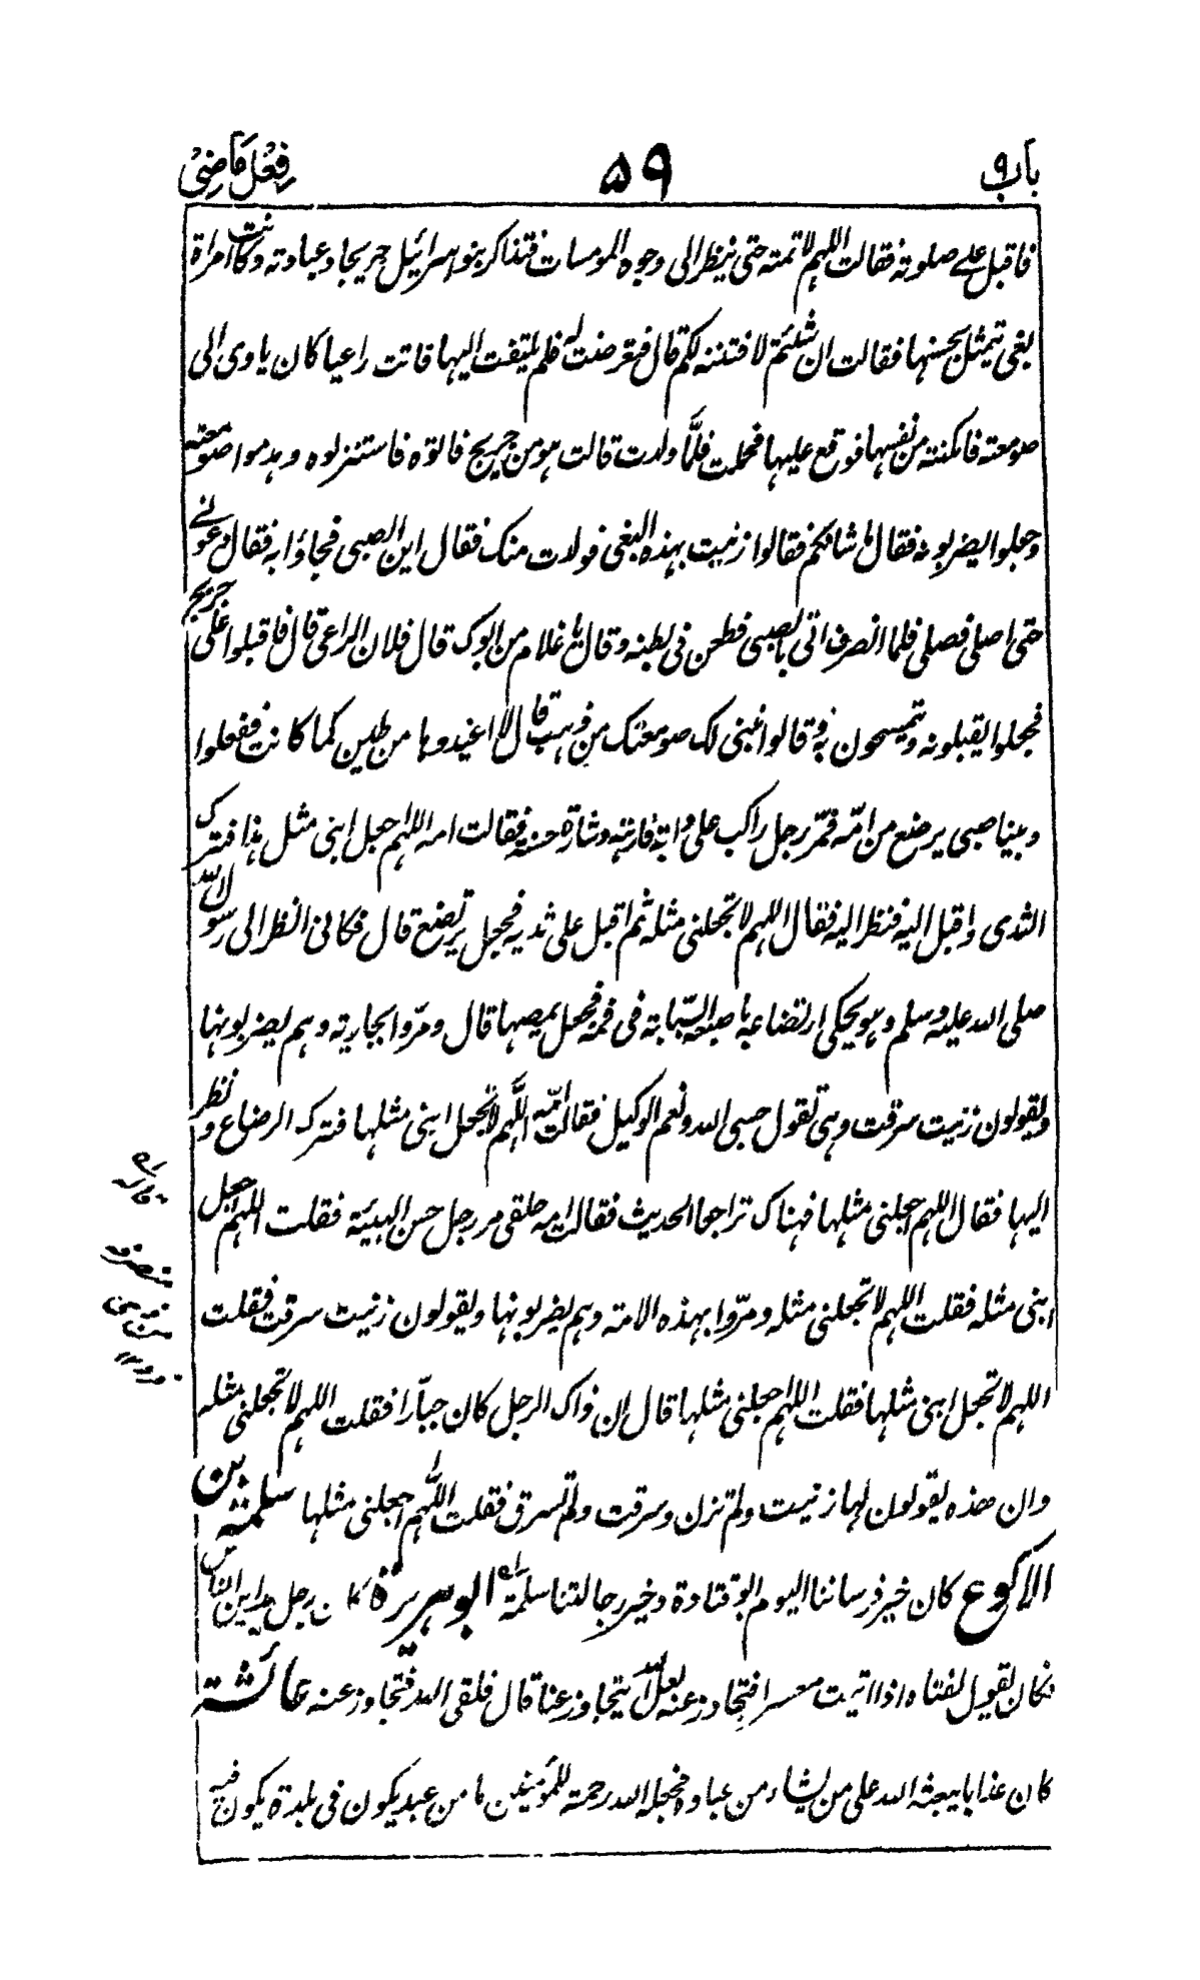 باب ٩
٥٩
فِعْل مَاضِیْ
فاقبل على صلوته فقالت اللهم لا تمته حتى ينظر الى وجوه المومسات فتذاكر بنو اسرائيل جريجا وعبادته وكانت امراة
بغى يتمثل بحسنها فقالت ان شئتم لافتننه لكم قال فتعرضت له فلم يلتفت اليها فاتت راعيا كان ياوى الى
صومعته فامكنته من نفسها فوقع عليها فحملت فلمّا ولدت قالت هو من جريج فاتوه فاستنزلوه وهدموا صومعته
وجعلوا يضربونه فقال ما شانكم فقالوا زنيت بهذه البغى فولدت منك فقال اين الصبى فجاؤا به فقال دعونے
حتى اصلى فصلى فلما انصرف اتى بالصبى فطعن فى بطنه وقال يا غلام من ابوك قال فلان الراعى قال فاقبلوا على جريج
فجعلوا يقبلونه ويتمسحون به وقالوا نبنى لك صومعتك من ذهب قال لا اعيدوها من طين كما كانت ففعلوا
وبينا صبى يرضع من امّه فمرّ رجل راكب على دابة فارهة وشارة حسنة فقالت امه اللهم اجعل ابنى مثل هذا فترك
الثدى واقبل اليه فنظر اليه فقال اللهم لا تجعلنى مثله ثم اقبل على ثديه فجعل يرتضع قال فكانى انظر الى رسول الله
صلى الله عليه وسلم وهو يحكى ارتضاعه باصبعه السبّابة فى فمه فجعل يمصها قال ومرّوا بجارية وهم يضربونها
ويقولون زنيت سرقت وهى تقول حسبى الله ونعم الوكيل فقالت امّه اللّهم لا تجعل ابنى مثلها فترك الرضاع ونظر
اليها فقال اللهم اجعلنى مثلها فهناك تراجعا الحديث فقالت امه حلقى مر رجل حسن الهيئة فقلت اللهم اجعل
ابنى مثله فقلت اللهم لا تجعلنى مثله ومرّوا بهذه الامة وهم يضربونها ويقولون زنيت سرقت فقلت
اللهم لا تجعل ابنى مثلها فقلت اللهم اجعلنى مثلها قال ان ذاك الرجل كان جبّارا فقلت اللهم لا تجعلنى مثله
وان هذه يقولون لها زنيت ولم تزن وسرقت ولم تسرق فقلت اللّهم اجعلنى مثلها سلمة بن
الاكوع كان خير فرساننا اليوم ابو قتادة وخير رجالتنا سلمة ابوهريرة كان رجل يداين الناس
فكان يقول لفتاه اذا اتيت معسرا فتجاوز عنه لعل الله يتجاوز عنا قال فلقى الله فتجاوز عنه عائشة
كان عذابا يبعثه الله على من يشاء من عباده فجعله الله رحمة للمؤمنين ما من عبد يكون فى بلدة يكون فيه